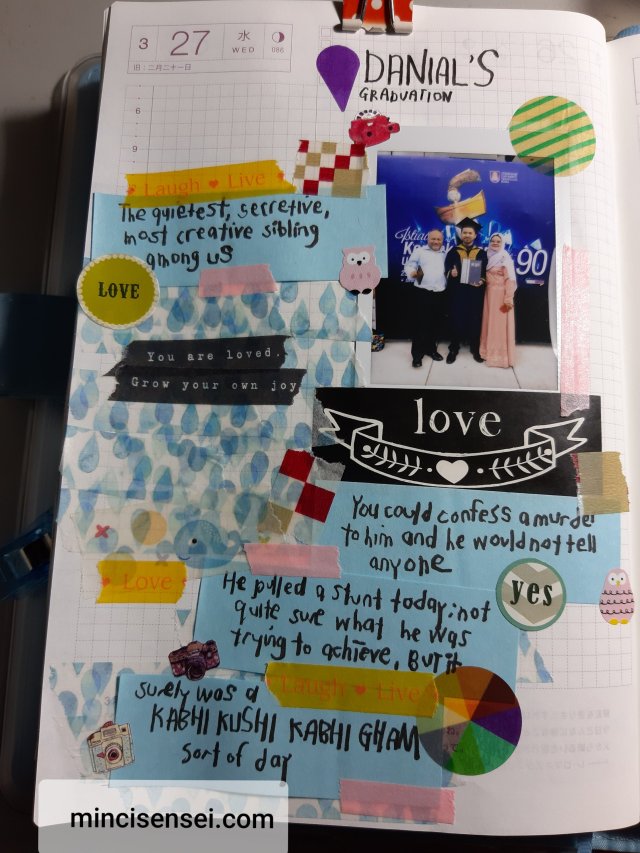 3 27 水 WED 086
旧：二月二十一日
DANIAL'S
GRADUATION
6
9
Laugh ♥ Live
The quietest, secretive,
most creative sibling
among us
LOVE
Istiadat
90
You are loved.
Grow your own joy
love
You could confess a murder
to him and he would not tell
anyone
yes
Love
He pulled a stunt today; not
quite sure what he was
trying to achieve, But it
Laugh ♥ Live
surely was a
KABHI KUSHI KABHI GHAM
sort of day
mincisensei.com